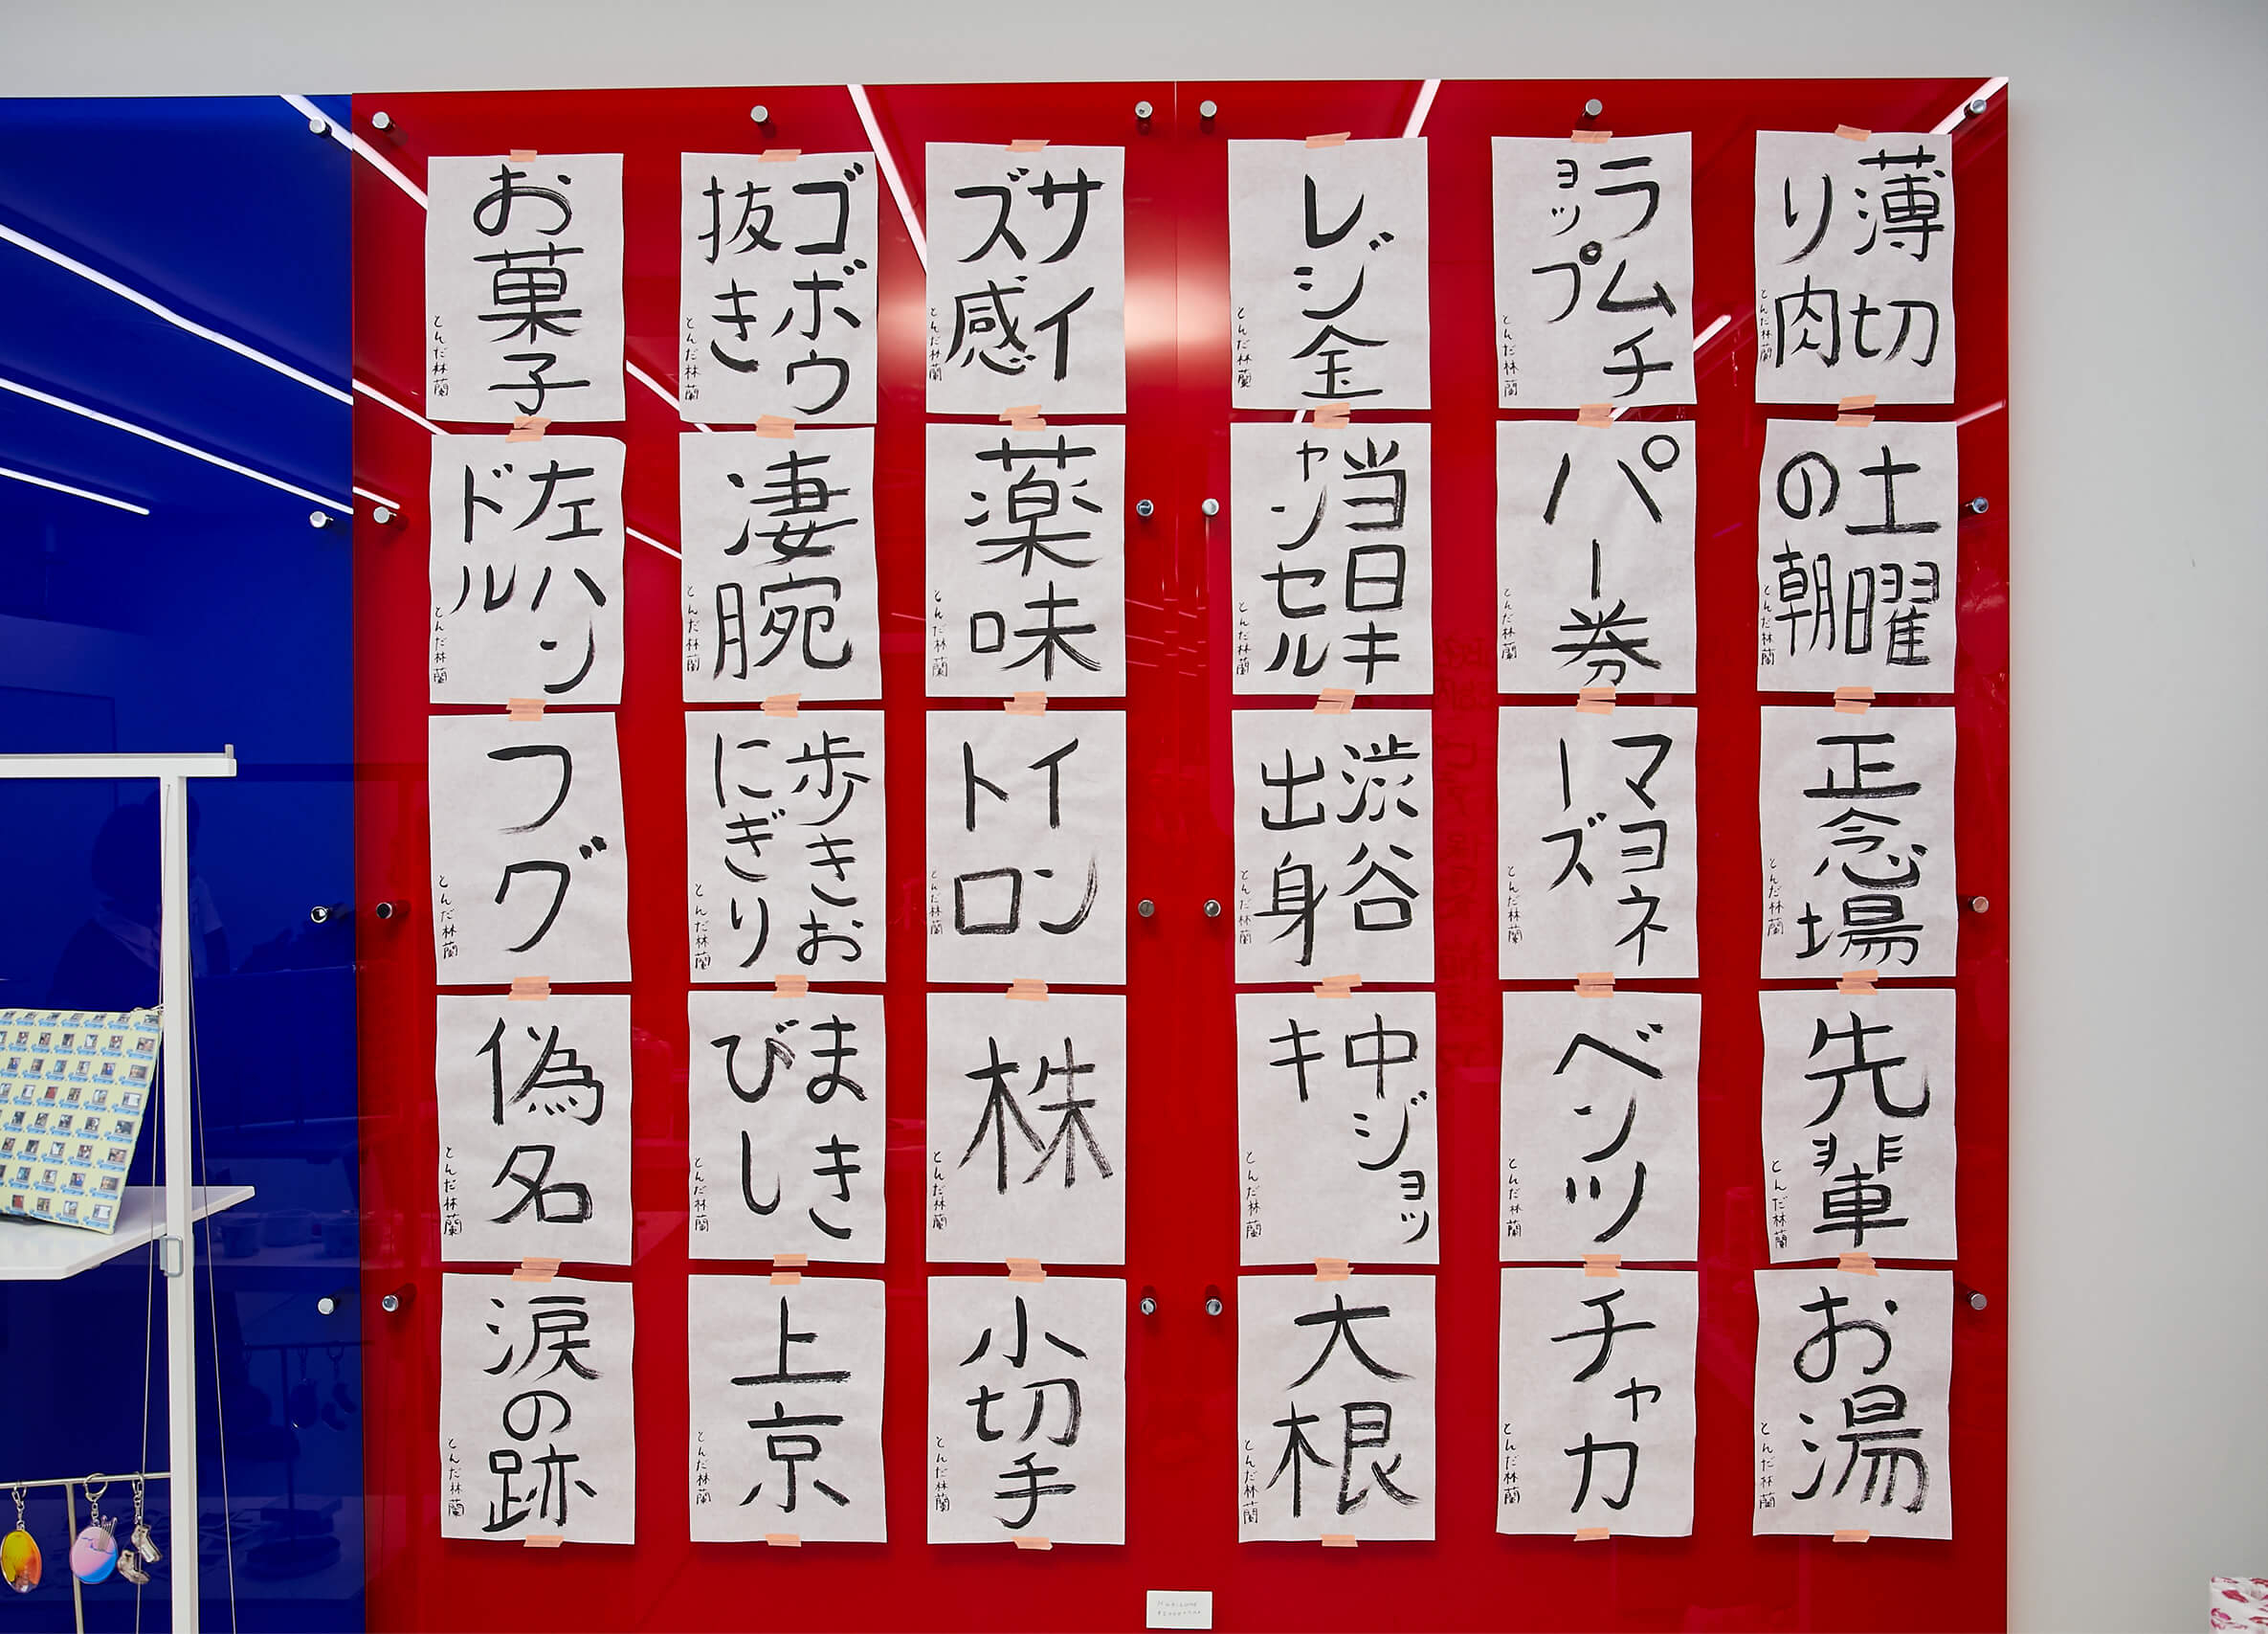 薄切
り肉
とんだ林蘭
土曜
の朝
とんだ林蘭
正念場
とんだ林蘭
先輩
とんだ林蘭
お湯
とんだ林蘭
ラムチ
ョップ
とんだ林蘭
パー券
とんだ林蘭
マヨネ
ーズ
とんだ林蘭
ベンツ
とんだ林蘭
チャカ
とんだ林蘭
レジ金
とんだ林蘭
当日キ
ャンセル
とんだ林蘭
渋谷
出身
とんだ林蘭
中ジョッ
キ
とんだ林蘭
大根
とんだ林蘭
サイ
ズ感
とんだ林蘭
薬味
とんだ林蘭
イン
トロ
とんだ林蘭
株
とんだ林蘭
小切手
とんだ林蘭
ゴボウ
抜き
とんだ林蘭
凄腕
とんだ林蘭
歩きお
にぎり
とんだ林蘭
まき
びし
とんだ林蘭
上京
とんだ林蘭
お菓子
とんだ林蘭
左ハン
ドル
とんだ林蘭
フグ
とんだ林蘭
偽名
とんだ林蘭
涙の跡
とんだ林蘭